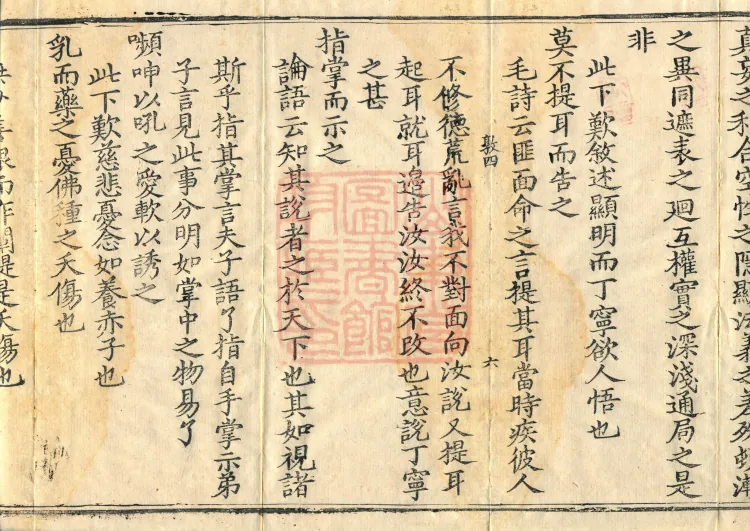 真妄之和合空性之隱顯法義之差殊頓漸
之異同遮表之廻互權實之深淺通局之是
非
此下歎敘述顯明而丁寧欲人悟也
莫不提耳而告之
毛詩云匪面命之言提其耳當時疾彼人
敎四 六
不修德荒亂言我不對面向汝說又提耳
起耳就耳邊告汝汝終不改也意說丁寧
之甚
指掌而示之
論語云知其說者之於天下也其如視諸
斯乎指其掌言夫子語了指自手掌示弟
子言見此事分明如掌中之物易了
嚬呻以吼之愛軟以誘之
此下歎慈悲憂念如養赤子也
乳而藥之憂佛種之夭傷也
善根而作闡提是夭傷也